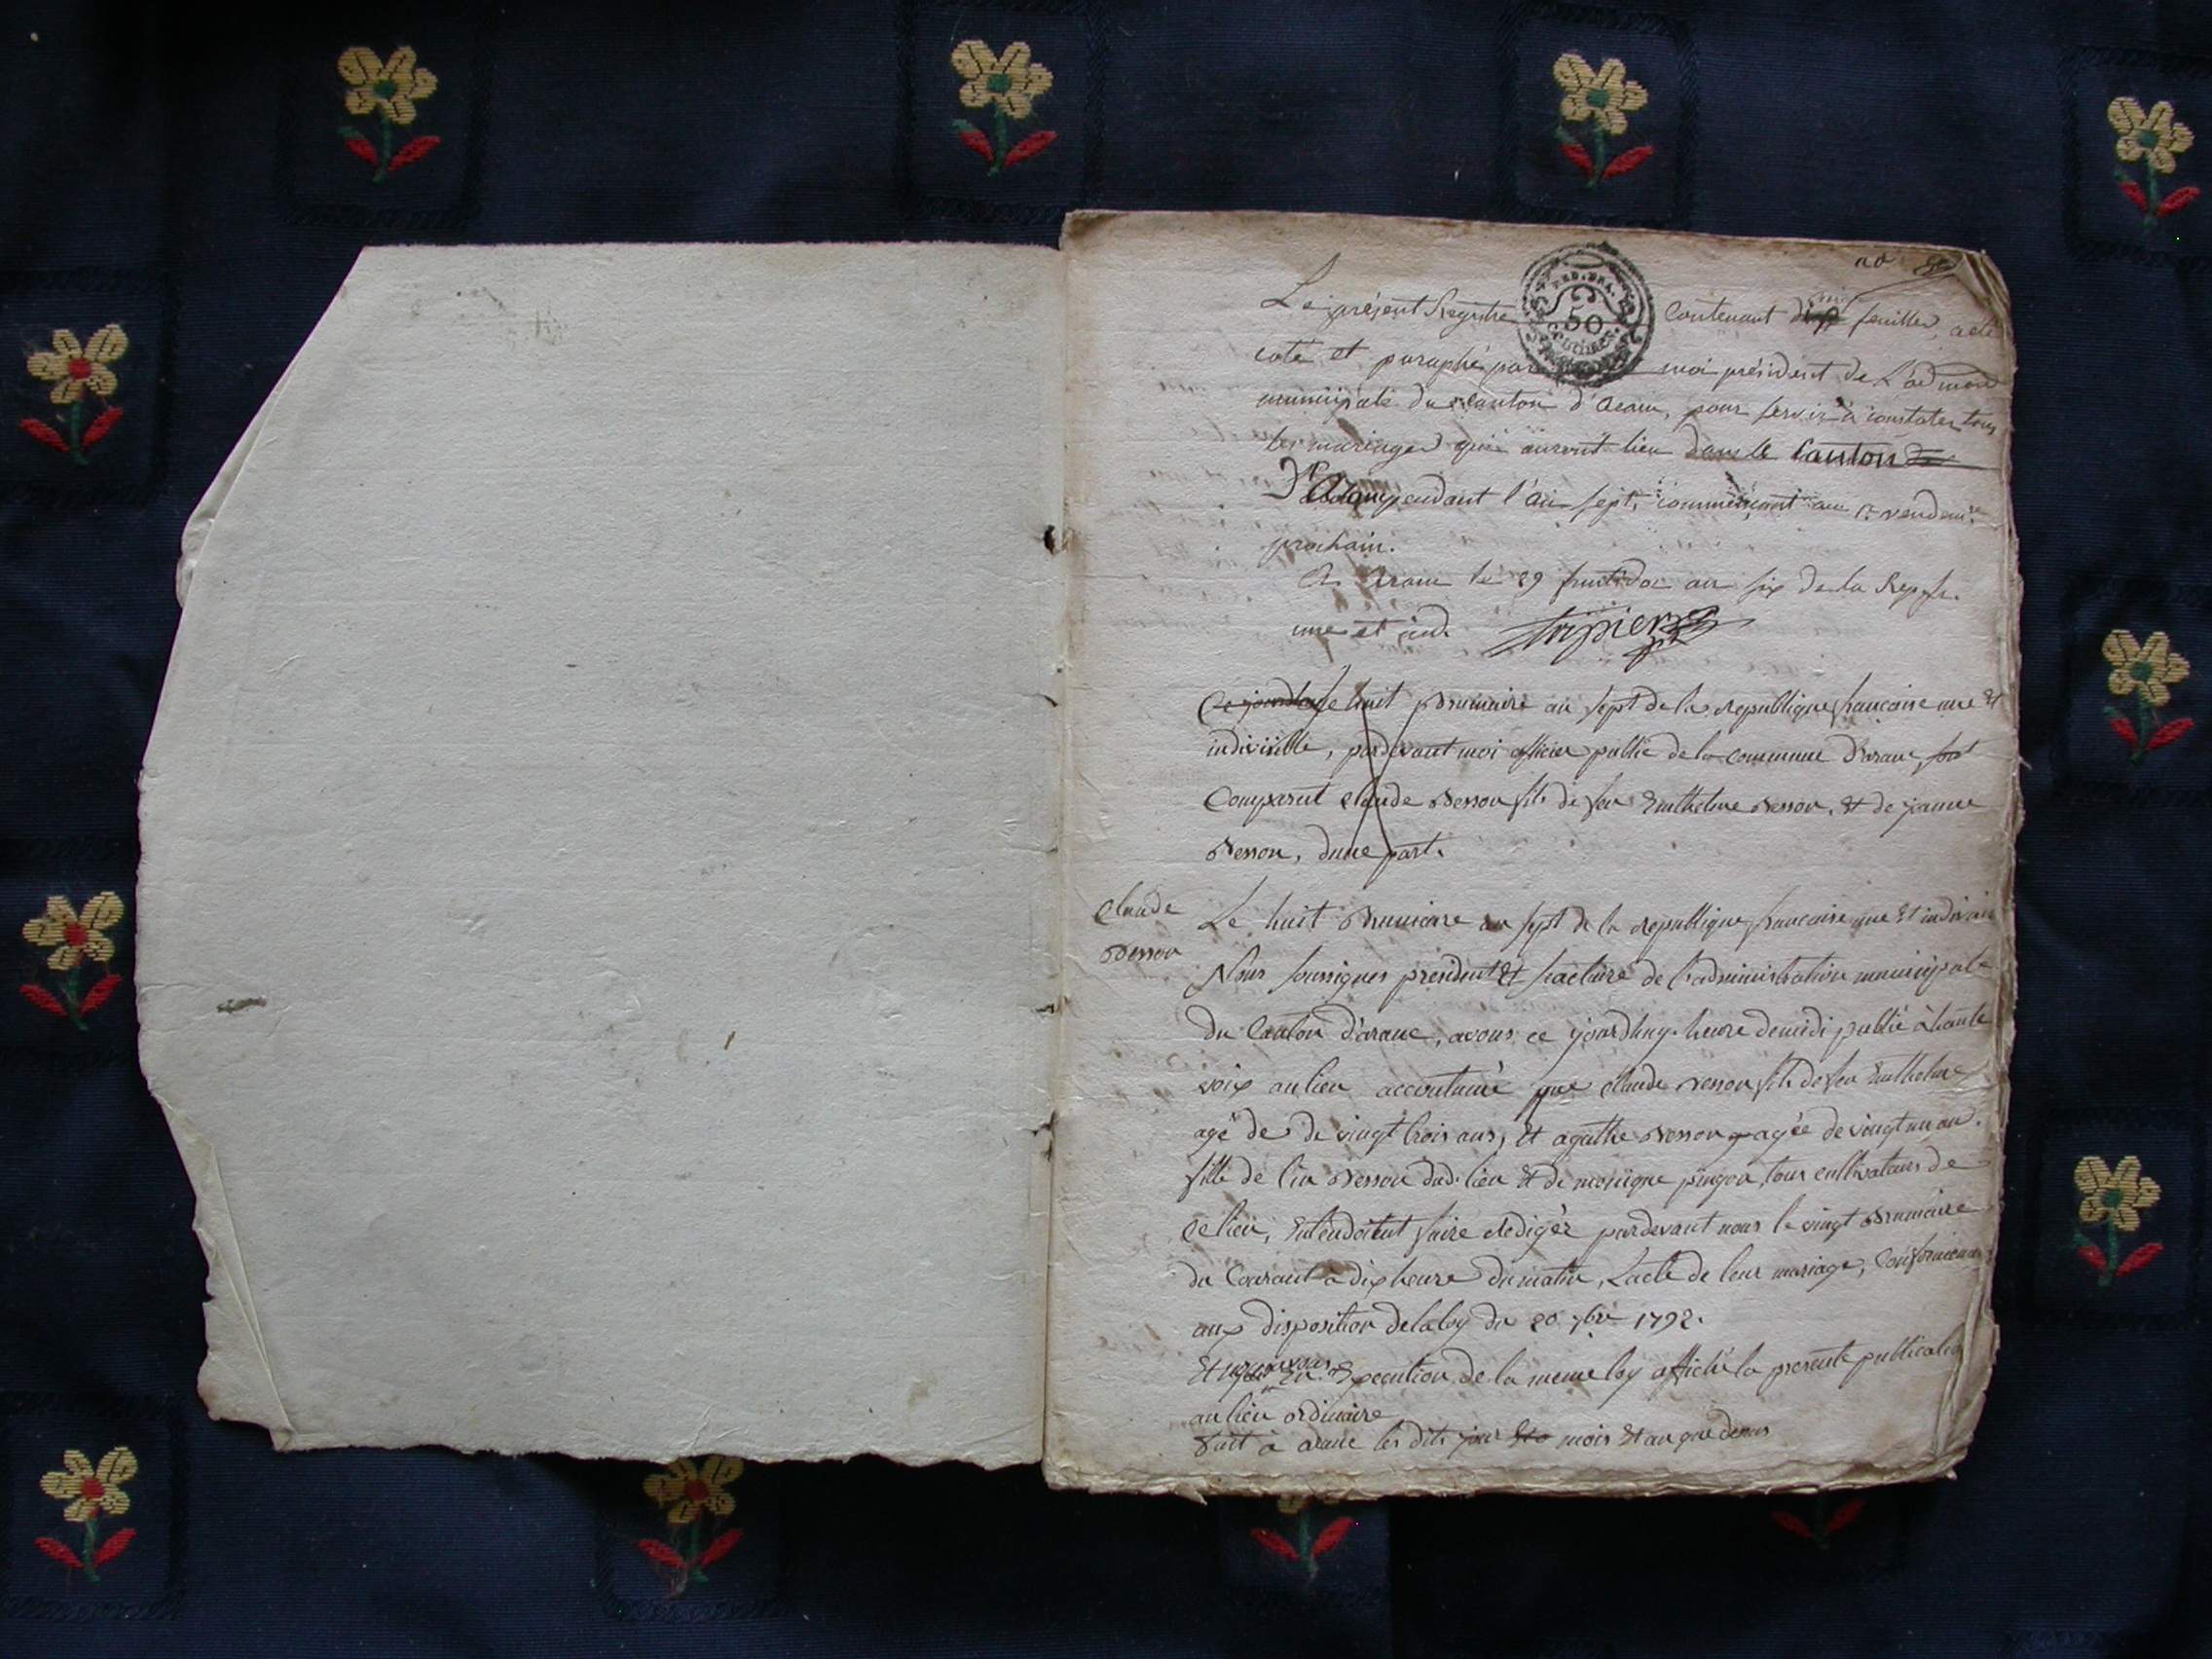 Le présent Registre contenant feuillets, a été
50
coté et paraphé par moi président de L'admon
municipale du canton d'Aranc, pour servir à constater tous
les mariages qui auront lieu dans le Canton
pendant l'an sept, commençant au 1er vendemre
prochain.
A Aranc le 29 fructidor an six de la Repfe.
une et ind.
huit Brumaire an sept de la republique francaise une Et
indivisible, pardevant moi officier public de la commune D'aranc, sont
Comparut claude Besson fils de feu Enthelme Besson, Et de jeanne
Besson, dune part.
Claude
Besson
Le huit Brumaire an sept de la republique francaise une Et indivis
Nous soussignes president Et secretaire de l'administration municipale
du Canton d'aranc, avons ce jourdhuy heure de midi publié à haute
voix au lieu accoutumé que claude Besson fils de feu Enthelme
agé de de vingt trois ans, Et agathe Besson agée de vingt un an.
fille de Besson dud. lieu Et de monique pingon, tous cultivateurs de
ce lieu, Entendoitent faire redigér pardevant nous le vingt Brumaire
du Courant a dix heure du matin, Lacte de leur mariage, Conformemen
aux disposition de la loy du 20 7bre 1792.
Et avons En Execution de la meme loy affiché la presente publication
au lieu ordinaire
fait à aranc les dits jour mois Et an que dessus